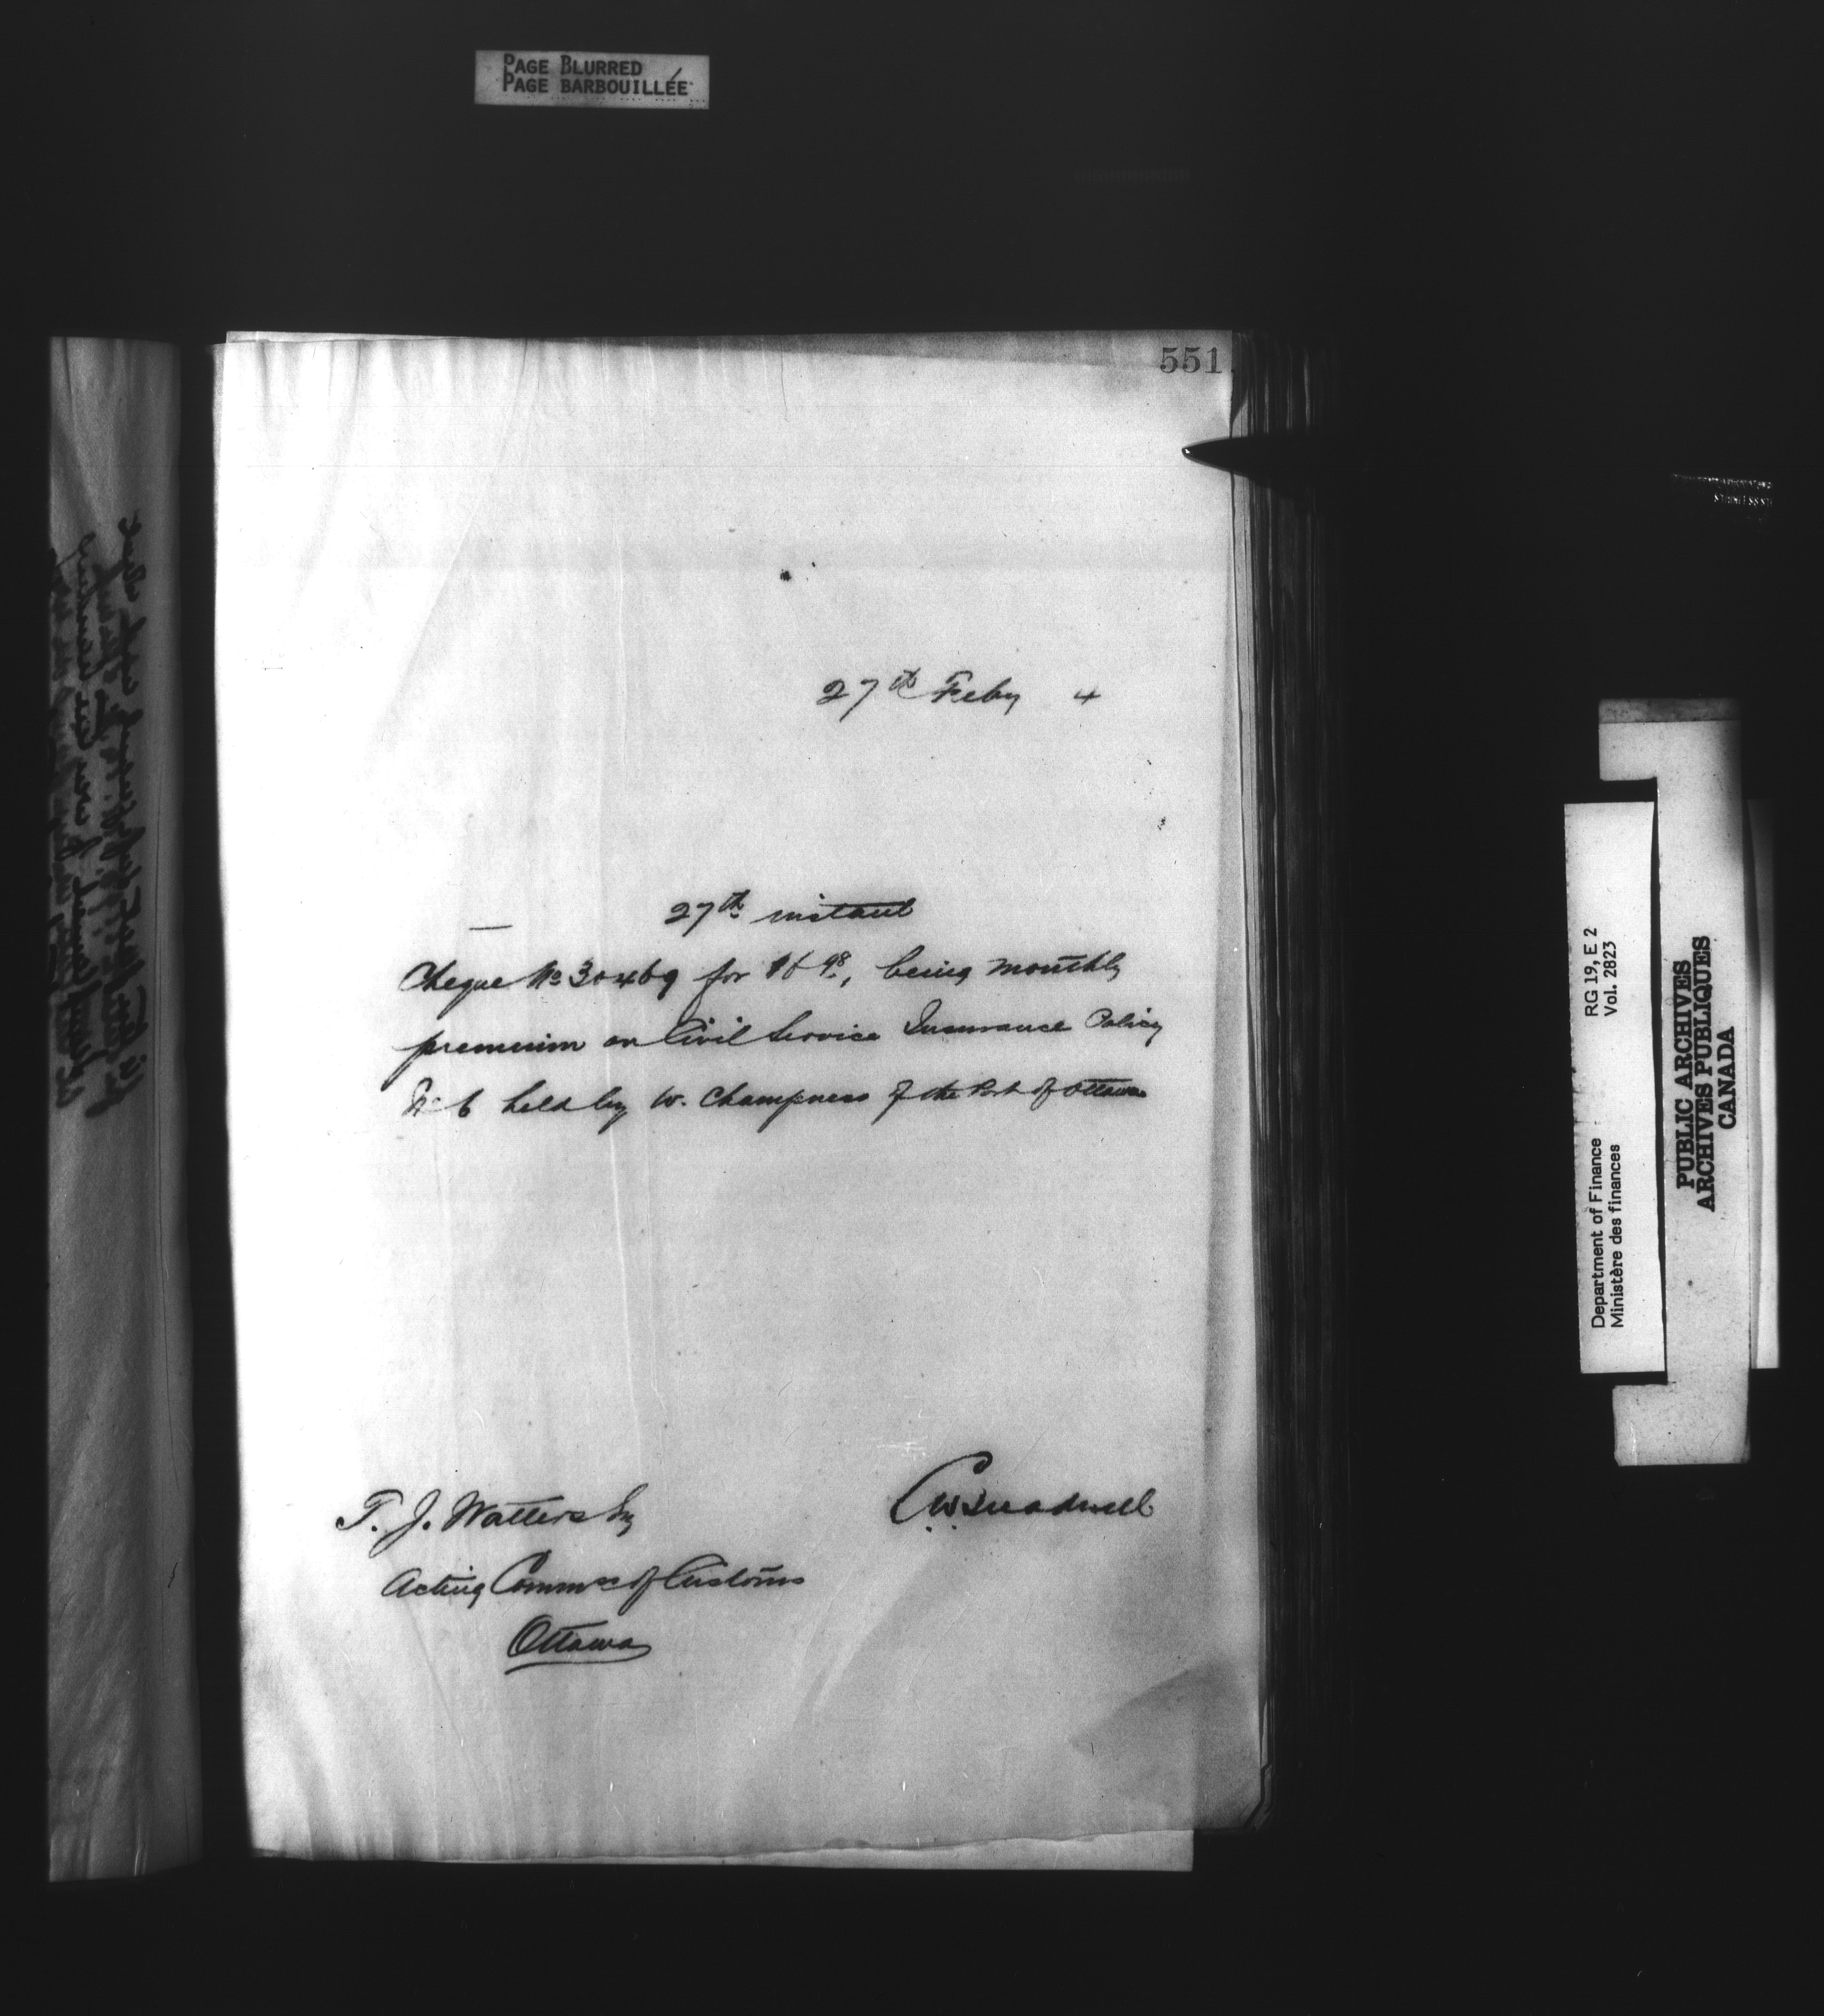 PAGE BLURRED
PAGE BARBOUILLÉE
551
27th Feby 4
27th instant
Cheque No 30469 for $6 98, being monthly
premium on Civil Service Insurance Policy
No 6 held by W. Champness of the Port of Ottawa
C.W. Treadwell
T. J. Watters Esq
Acting Commr of Customs
Ottawa
Department of Finance RG 19, E 2
Ministère des finances Vol. 2823
PUBLIC ARCHIVES
ARCHIVES PUBLIQUES
CANADA